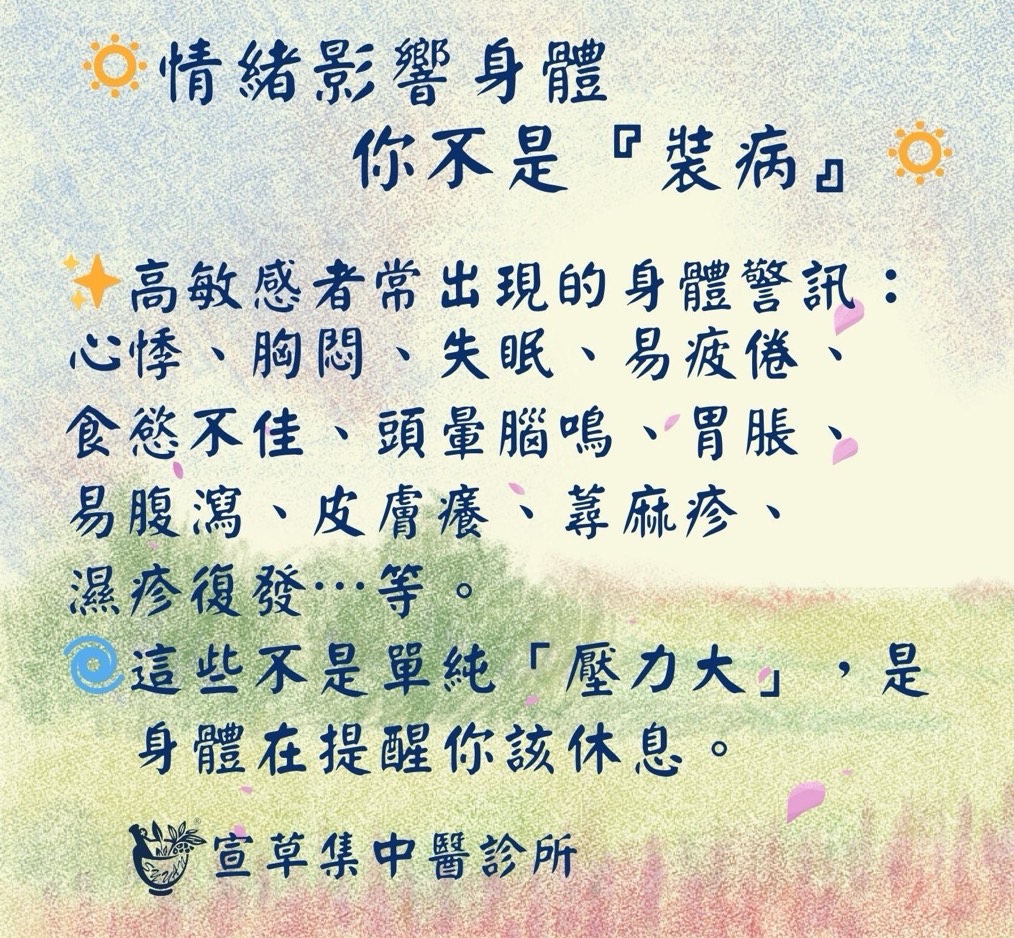 情緒影響身體
你不是『裝病』
高敏感者常出現的身體警訊：
心悸、胸悶、失眠、易疲倦、
食慾不佳、頭暈腦鳴、胃脹、
易腹瀉、皮膚癢、蕁麻疹、
濕疹復發…等。
這些不是單純「壓力大」，是
身體在提醒你該休息。
宣草集中醫診所